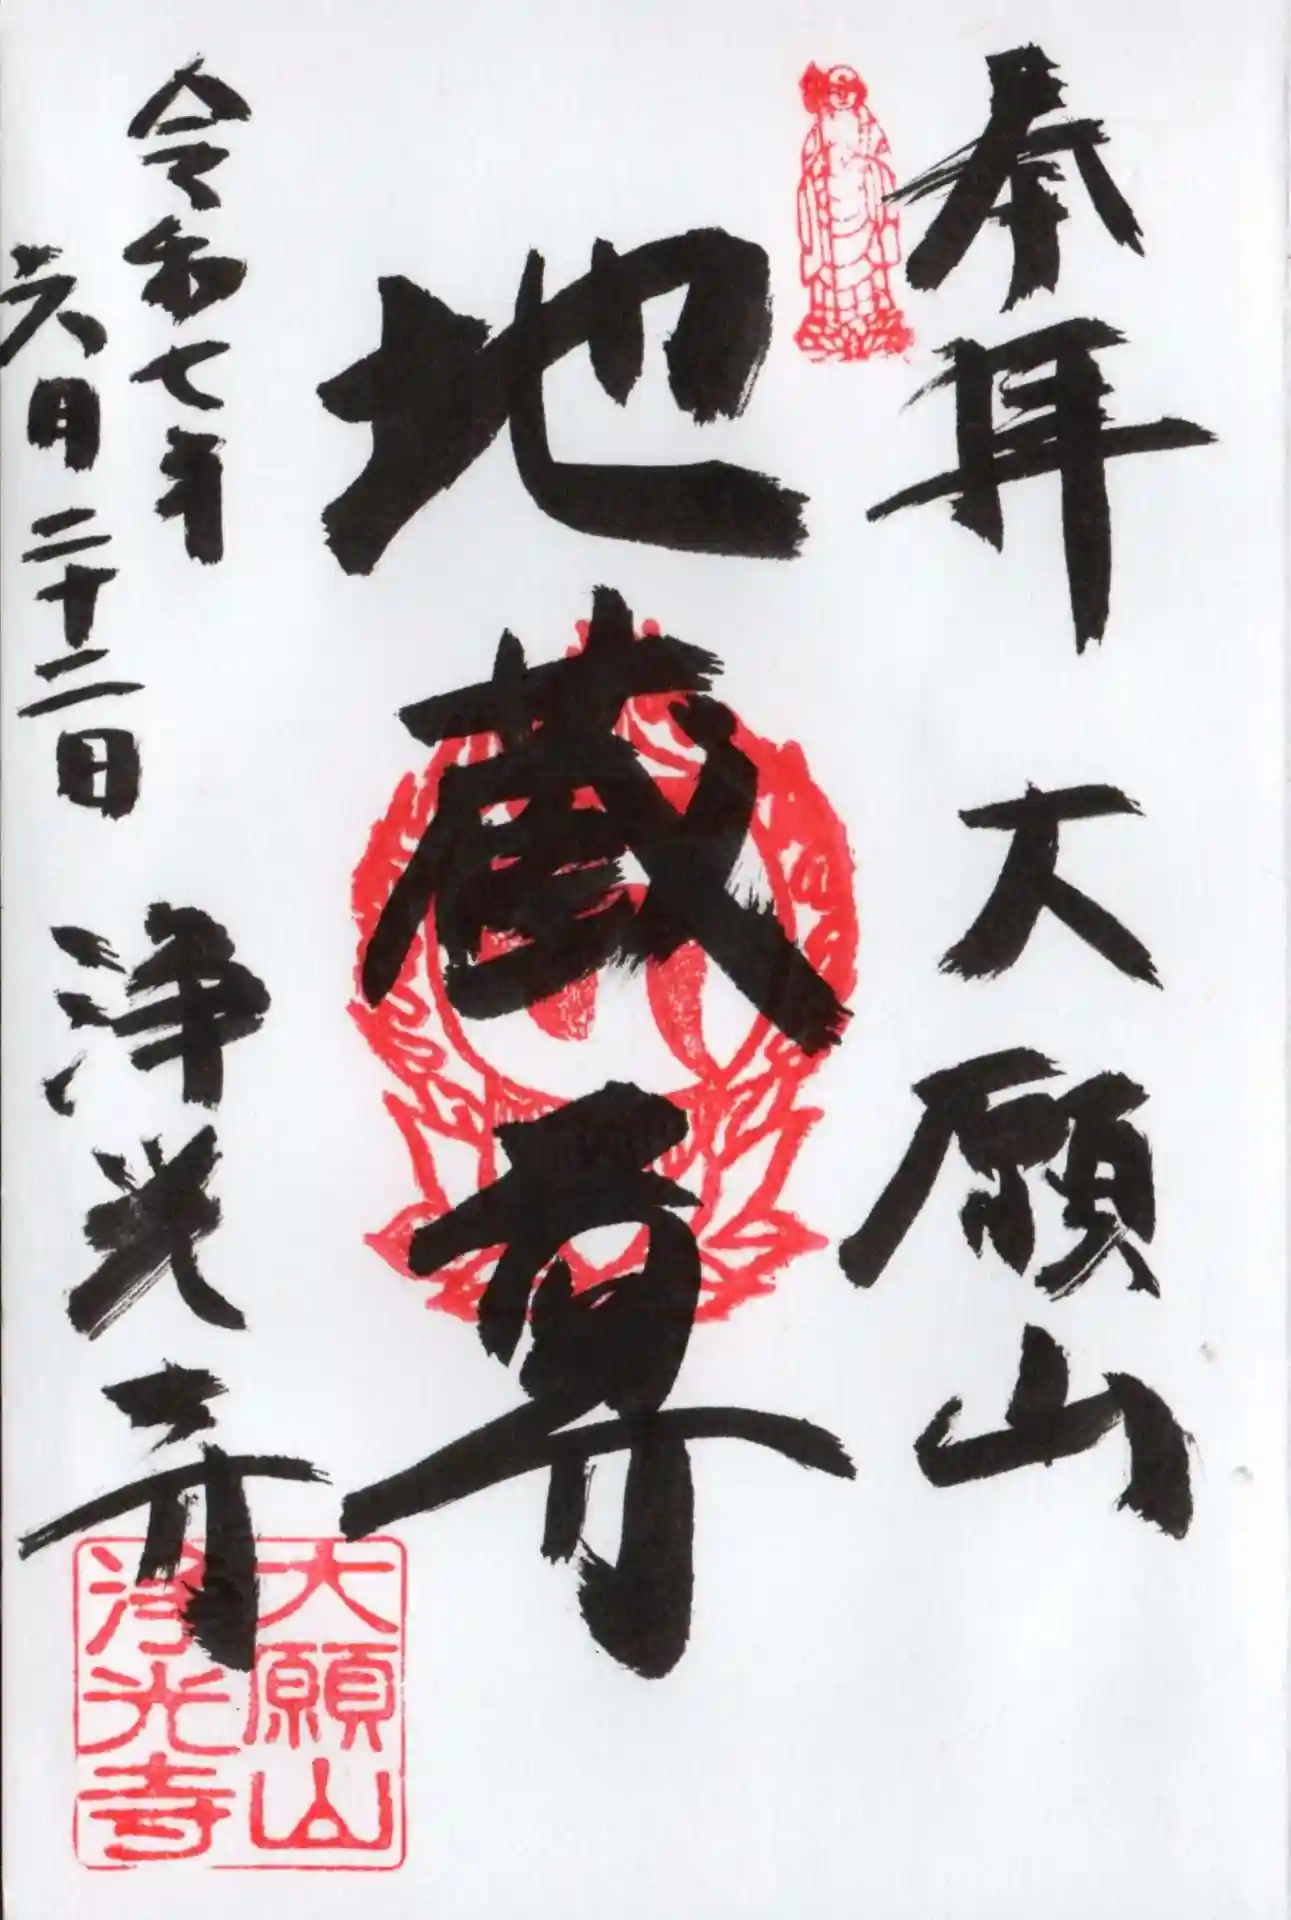 奉拝 大願山
地蔵尊
令和七年
六月二十二日 浄光寺
大願山
浄光寺